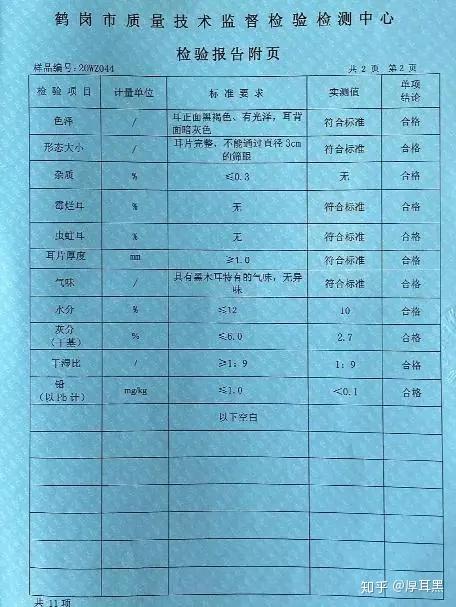 鹤岗市质量技术监督检验检测中心
检验报告附页
样品编号:20WZ044 共 2 页 第 2 页
检验项目 计量单位 标准要求 实测值 单项结论
色泽 / 耳正面黑褐色、有光泽，耳背面暗灰色 符合标准 合格
形态大小 / 耳片完整，不能通过直径3cm的筛眼 符合标准 合格
杂质 % ≤0.3 无 合格
霉烂耳 % 无 符合标准 合格
虫蛀耳 % 无 符合标准 合格
耳片厚度 mm ≥1.0 符合标准 合格
气味 / 具有黑木耳特有的气味，无异味 符合标准 合格
水分 % ≤12 10 合格
灰分(干基) % ≤6.0 2.7 合格
干湿比 / ≥1：9 1：9 合格
铅(以Pb计) mg/kg ≤1.0 <0.1 合格
以下空白
共 11 项
知乎 @厚耳黑